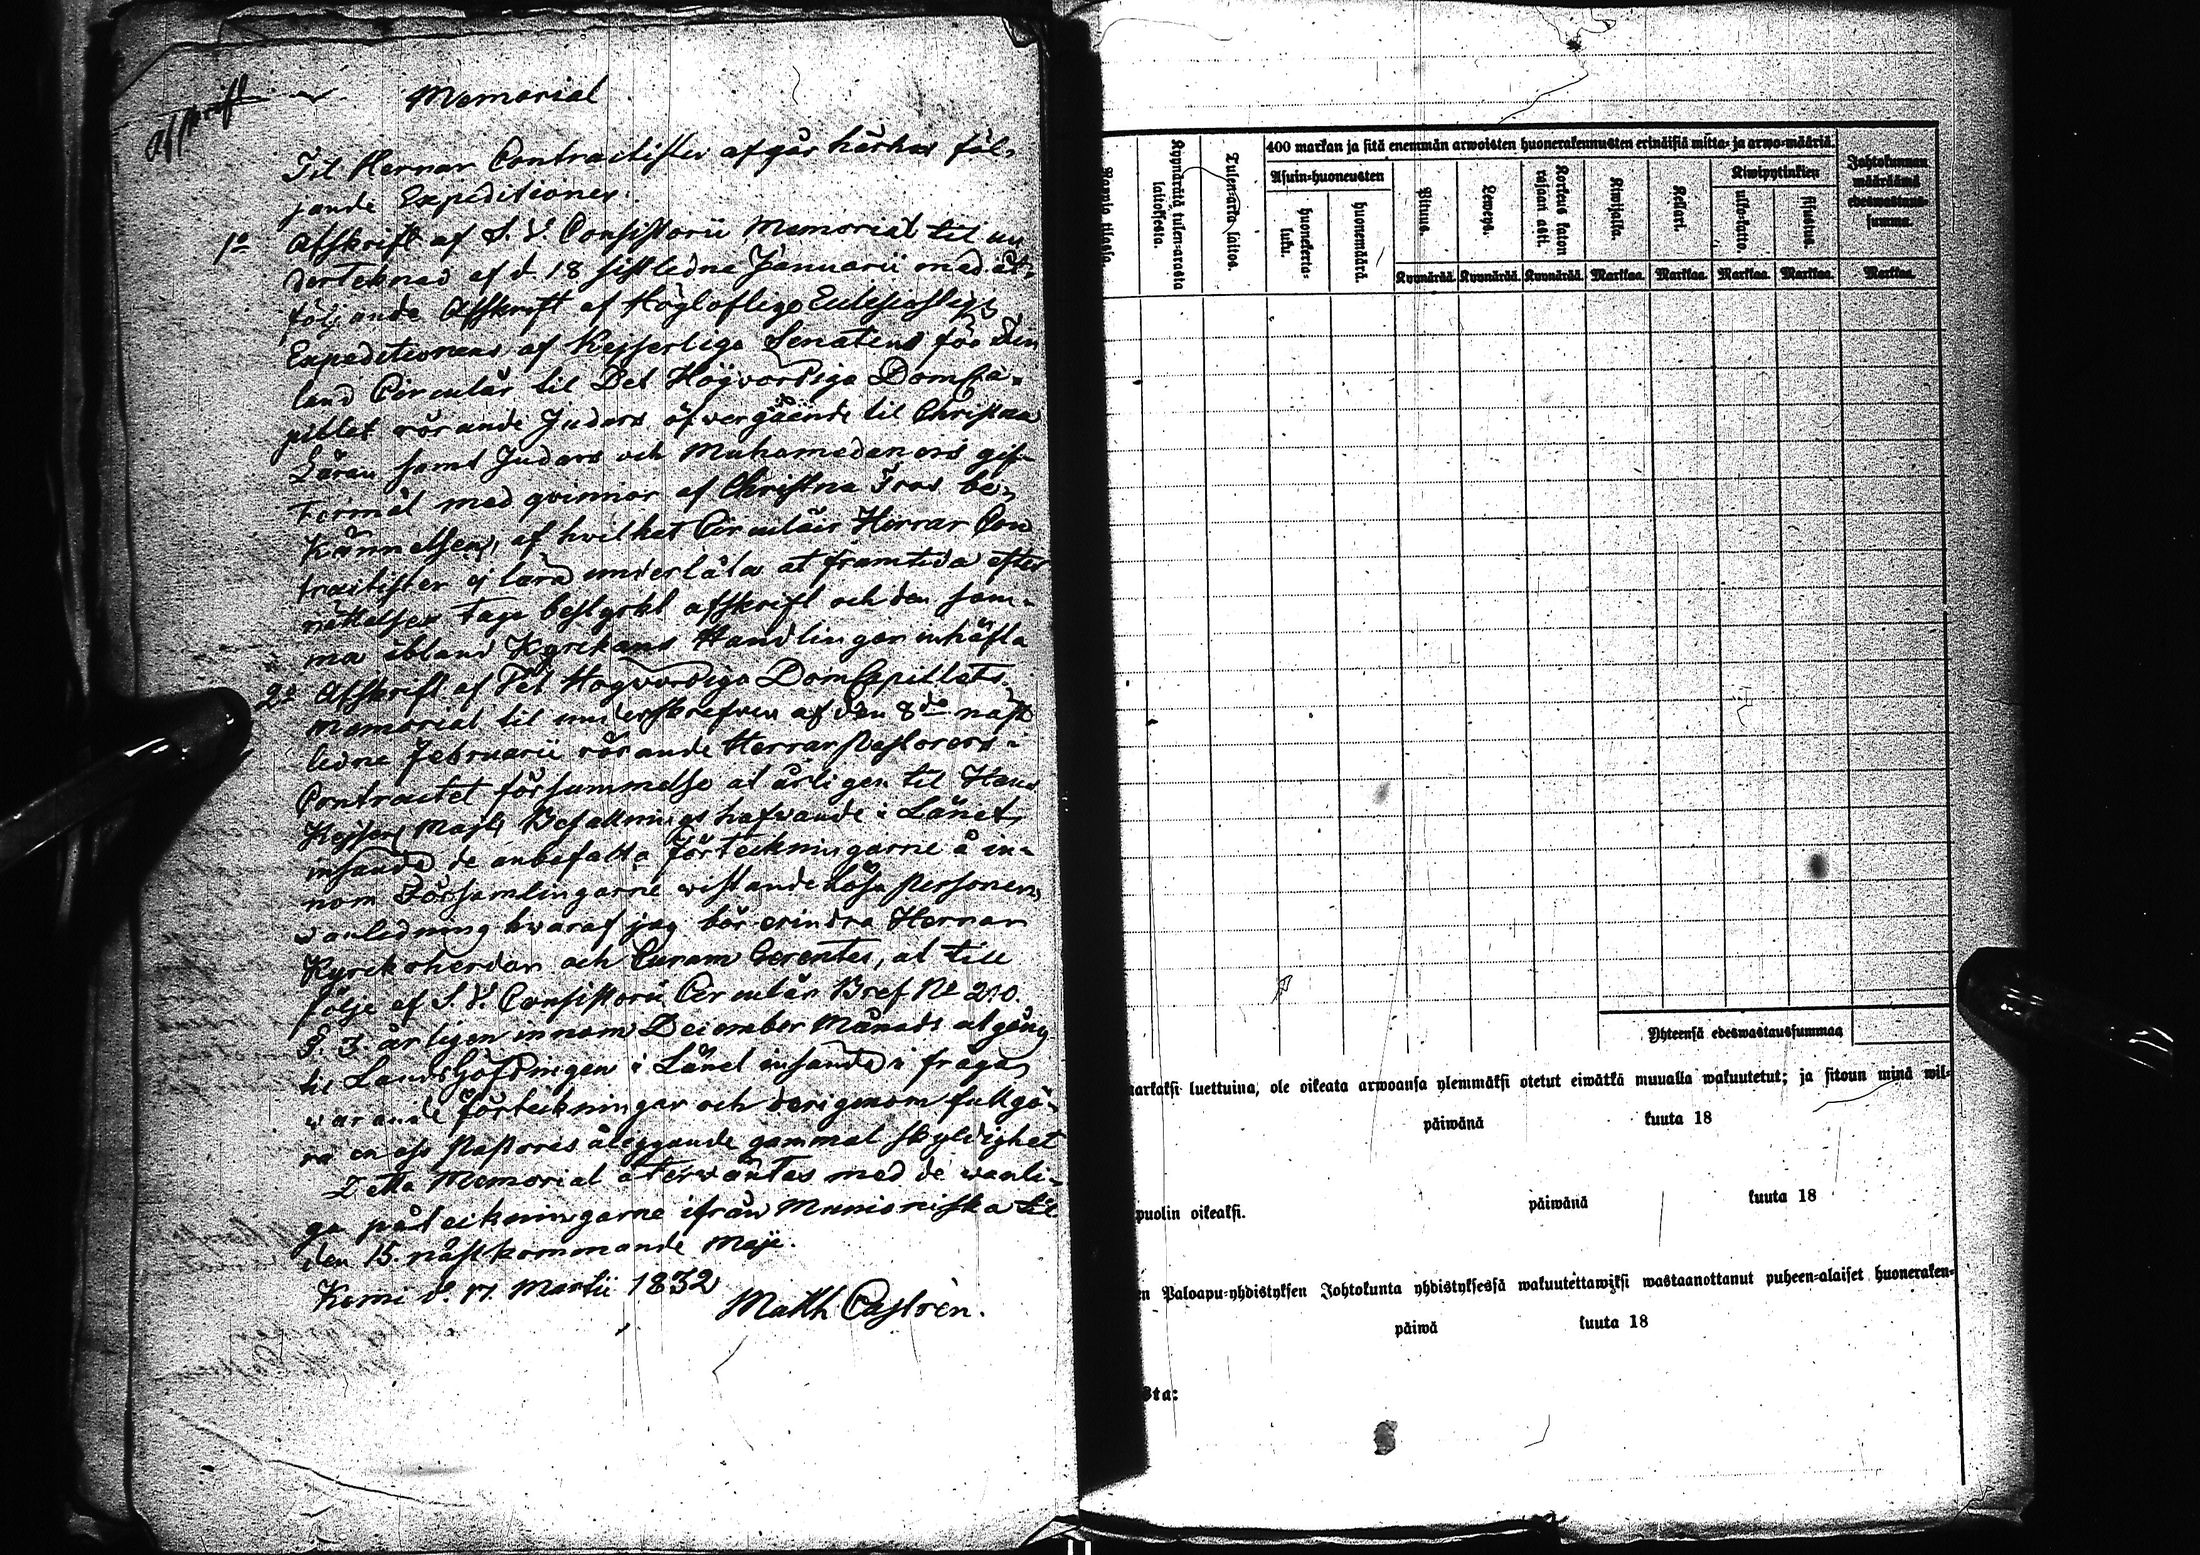 Afskrift
Memorial
Til Herrar Contractister afgår härhos föl-
jande Expeditioner:
1o Afskrift af S. V. Consistorii Memorial til un
dertecknad af d. 18 sistledne Januarii med åt-
följande Afskrift af Höglofliga Ecclesiastique
Expeditionens af Kejserliga Senaten för Fin
land Circulär til Det Högvördiga DomCa-
pitlet rörande Judars öfvergående til Christna
Läran samt Judars och Muhamedaners gif-
termål med qvinnor af Christna Tros be-
kännelsen, af hvilket Circulär Herrar Con
tractister ej lära underlåta at framtida efter
rättelse taga bestyrkt afskrift och den sam-
ma ibland Kyrckans Handlingar inhäfta
2o Afskrift af Det Högvördiga DomCapitlets
Memorial til underskrefven af den 8de näst
ledne Februarii rörande Herrar Pastorers i
Contractet försummelse at årligen til Hans
Kejserl Majts Befallningshafvande i Länet
insända de anbefalta Förteckningarne å in-
nom Församlingarne vistande lösa Personer,
i anledning hvaraf jag bör erindra Herrar
Kyrckoherdar och Curam Gerentes, at till
följe af S. V. Consistorii Circulär Bref No 210.
§. 3. årligen innom December Månads utgång
til LandsHöfdingen i Länet insända i fråga
warande förteckningar och derigenom fullgö-
ra en oss Pastores åleggande gammal skyldighet
Detta Memorial återväntas med de vanli-
ga påteckningarne ifrån Muonioniska til
den 15. nästkommande Maji.
Kemi d. 17. Martii 1832
Matth Castrén.
400 markan ja sitä enemmän arwoisten huonerakennusten erinäisiä mitta- ja arwo-määriä.
Johtokunnan määräämä edeswastaus-summa.
Kyynärätä tulen-arasta laitoksesta.
Tulen-arka laitos.
Asuin-huoneusten
huonekerta-luku.
huonemäärä.
Pituus.
Leweys.
Korkeus katon rajaan asti.
Kiwijalka.
Kellari.
Kiwipytinkien
ulko-katto.
sisustus.
Kyynärää. Kyynärää. Kyynärää. Markkaa. Markkaa. Markkaa. Markkaa. Markkaa.
Yhteensä edeswastaussummaa
markaksi luettuina, ole oikeata arwoansa ylemmäksi otetut eiwätkä muualla wakuutetut; ja sitoun minä wil-
päiwänä kuuta 18
puolin oikeaksi. päiwänä kuuta 18
en Paloapu-yhdistyksen Johtokunta yhdistyksessä wakuutettawiksi wastaanottanut puheen-alaiset huoneraken-
päiwä kuuta 18
sta: